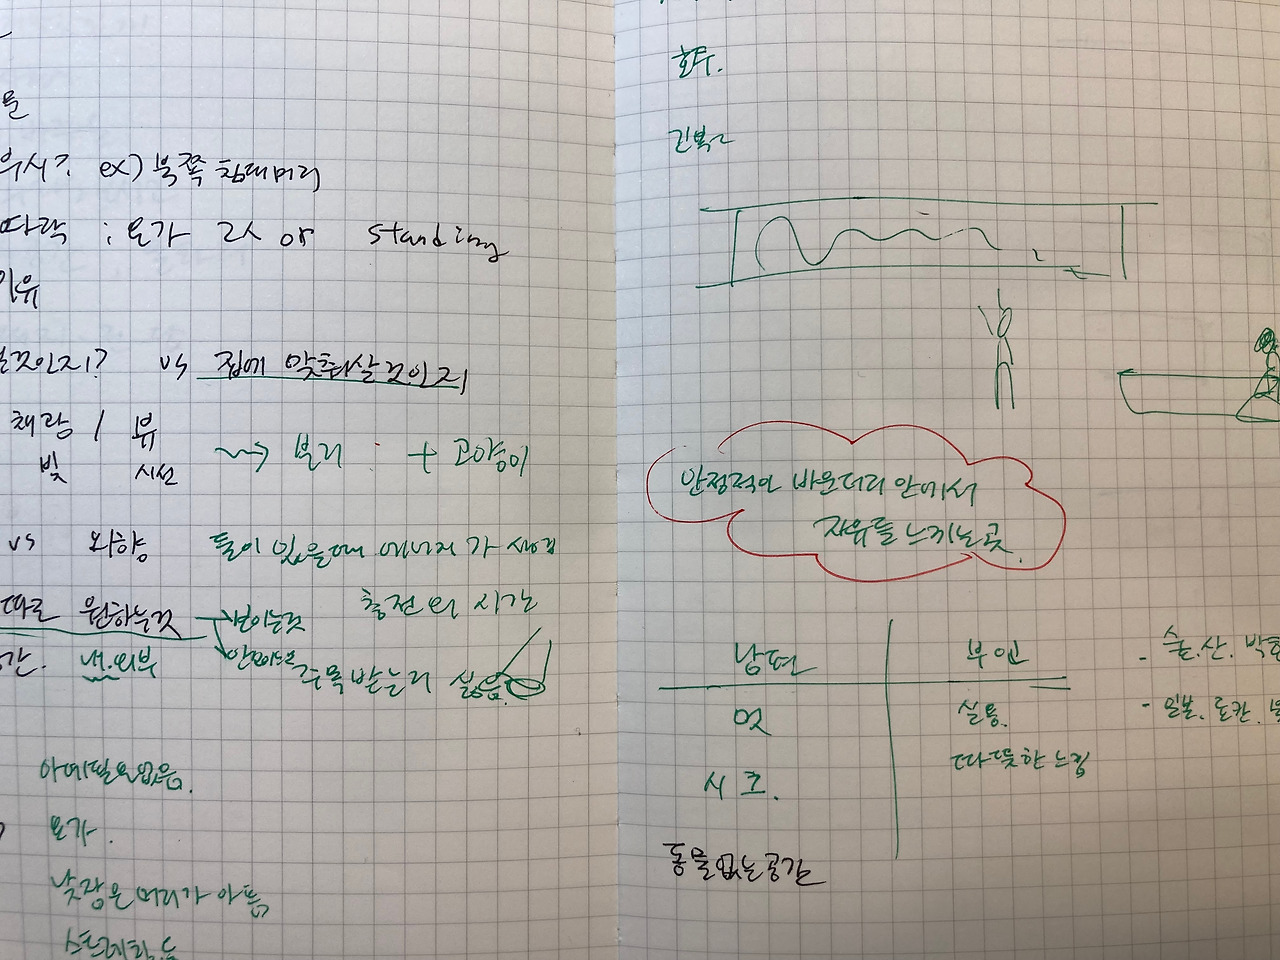 ex) 북쪽 침대머리
다락 : 요가 2人 or standing
이유
것인지? vs 집에 맞춰살것인지
채광 / 뷰
빛 시선
~~> 분리 : + 고양이
vs 외향
둘이 있을때 에너지가 생김
충전의 시간
따로 원하는것
보이는것
안보이는것
내.외부
주목받는거 싫음.
아예필요없음.
요가.
낮잠은 머리가 아픔
스트레칭
안정적인 바운더리 안에서
자유를 느끼는 곳.
남편 부인
멋 실용.
따뜻한 느낌
시크.
- 술.산.
- 일본.료칸.
동물없는공간